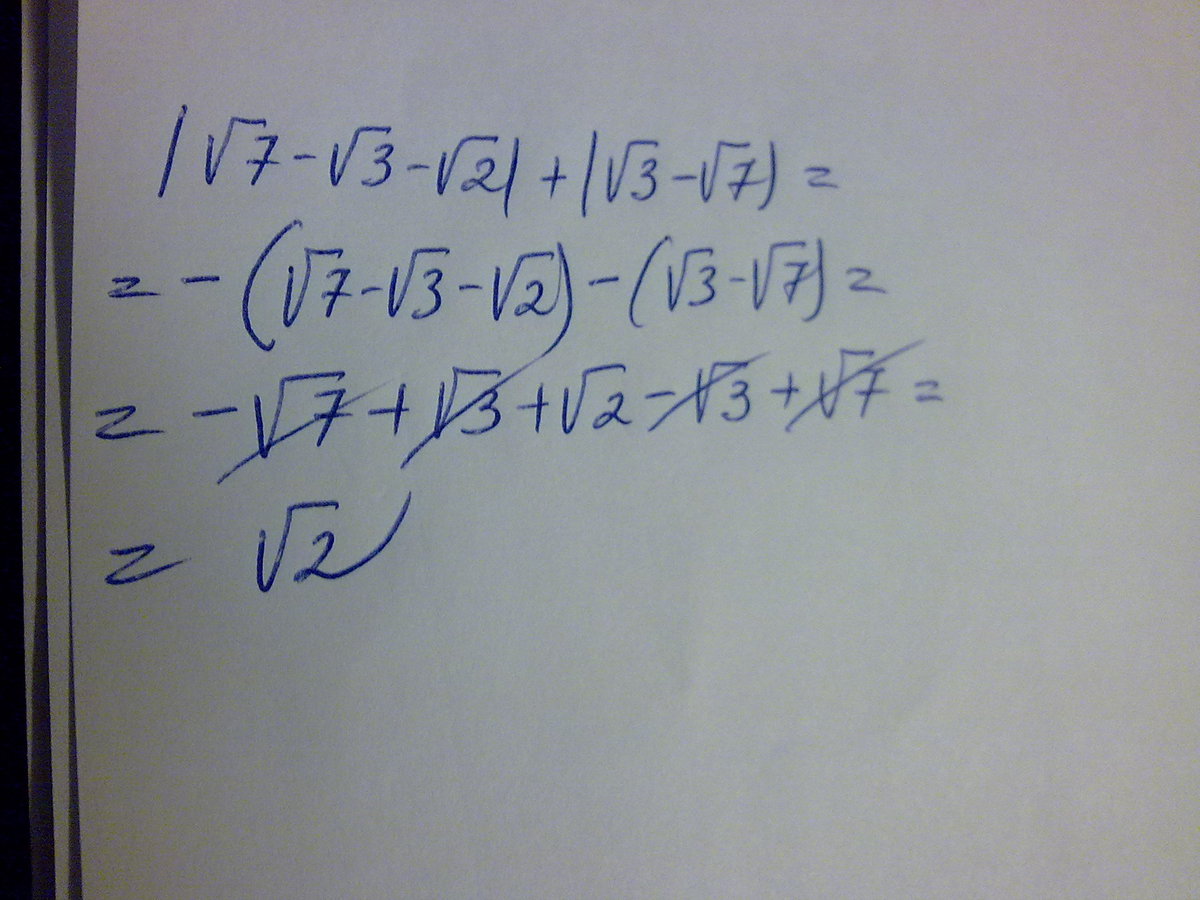 |√7-√3-√2|+|√3-√7|=
=-(√7-√3-√2)-(√3-√7)=
=-√7+√3+√2-√3+√7=
= √2